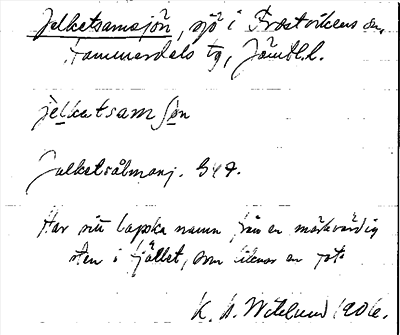 Jelketsamsjön, sjö i Frostvikens sn,
Hammerdals tg, Jämtl. l.
jelkatsam sjøn
Jalketsålmanj. G 4 9.
Har sitt lapska namn från en märkvärdig
sten i fjället, som liknar en
K. B. Wiklund 1906.